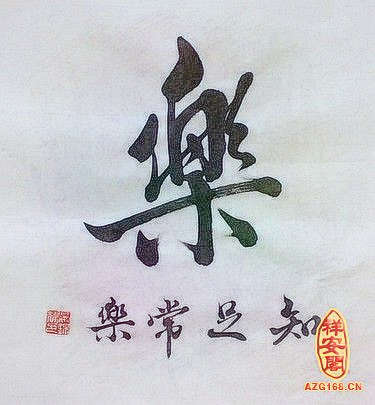 樂
知足常樂
祥安閣
AZG168.CN